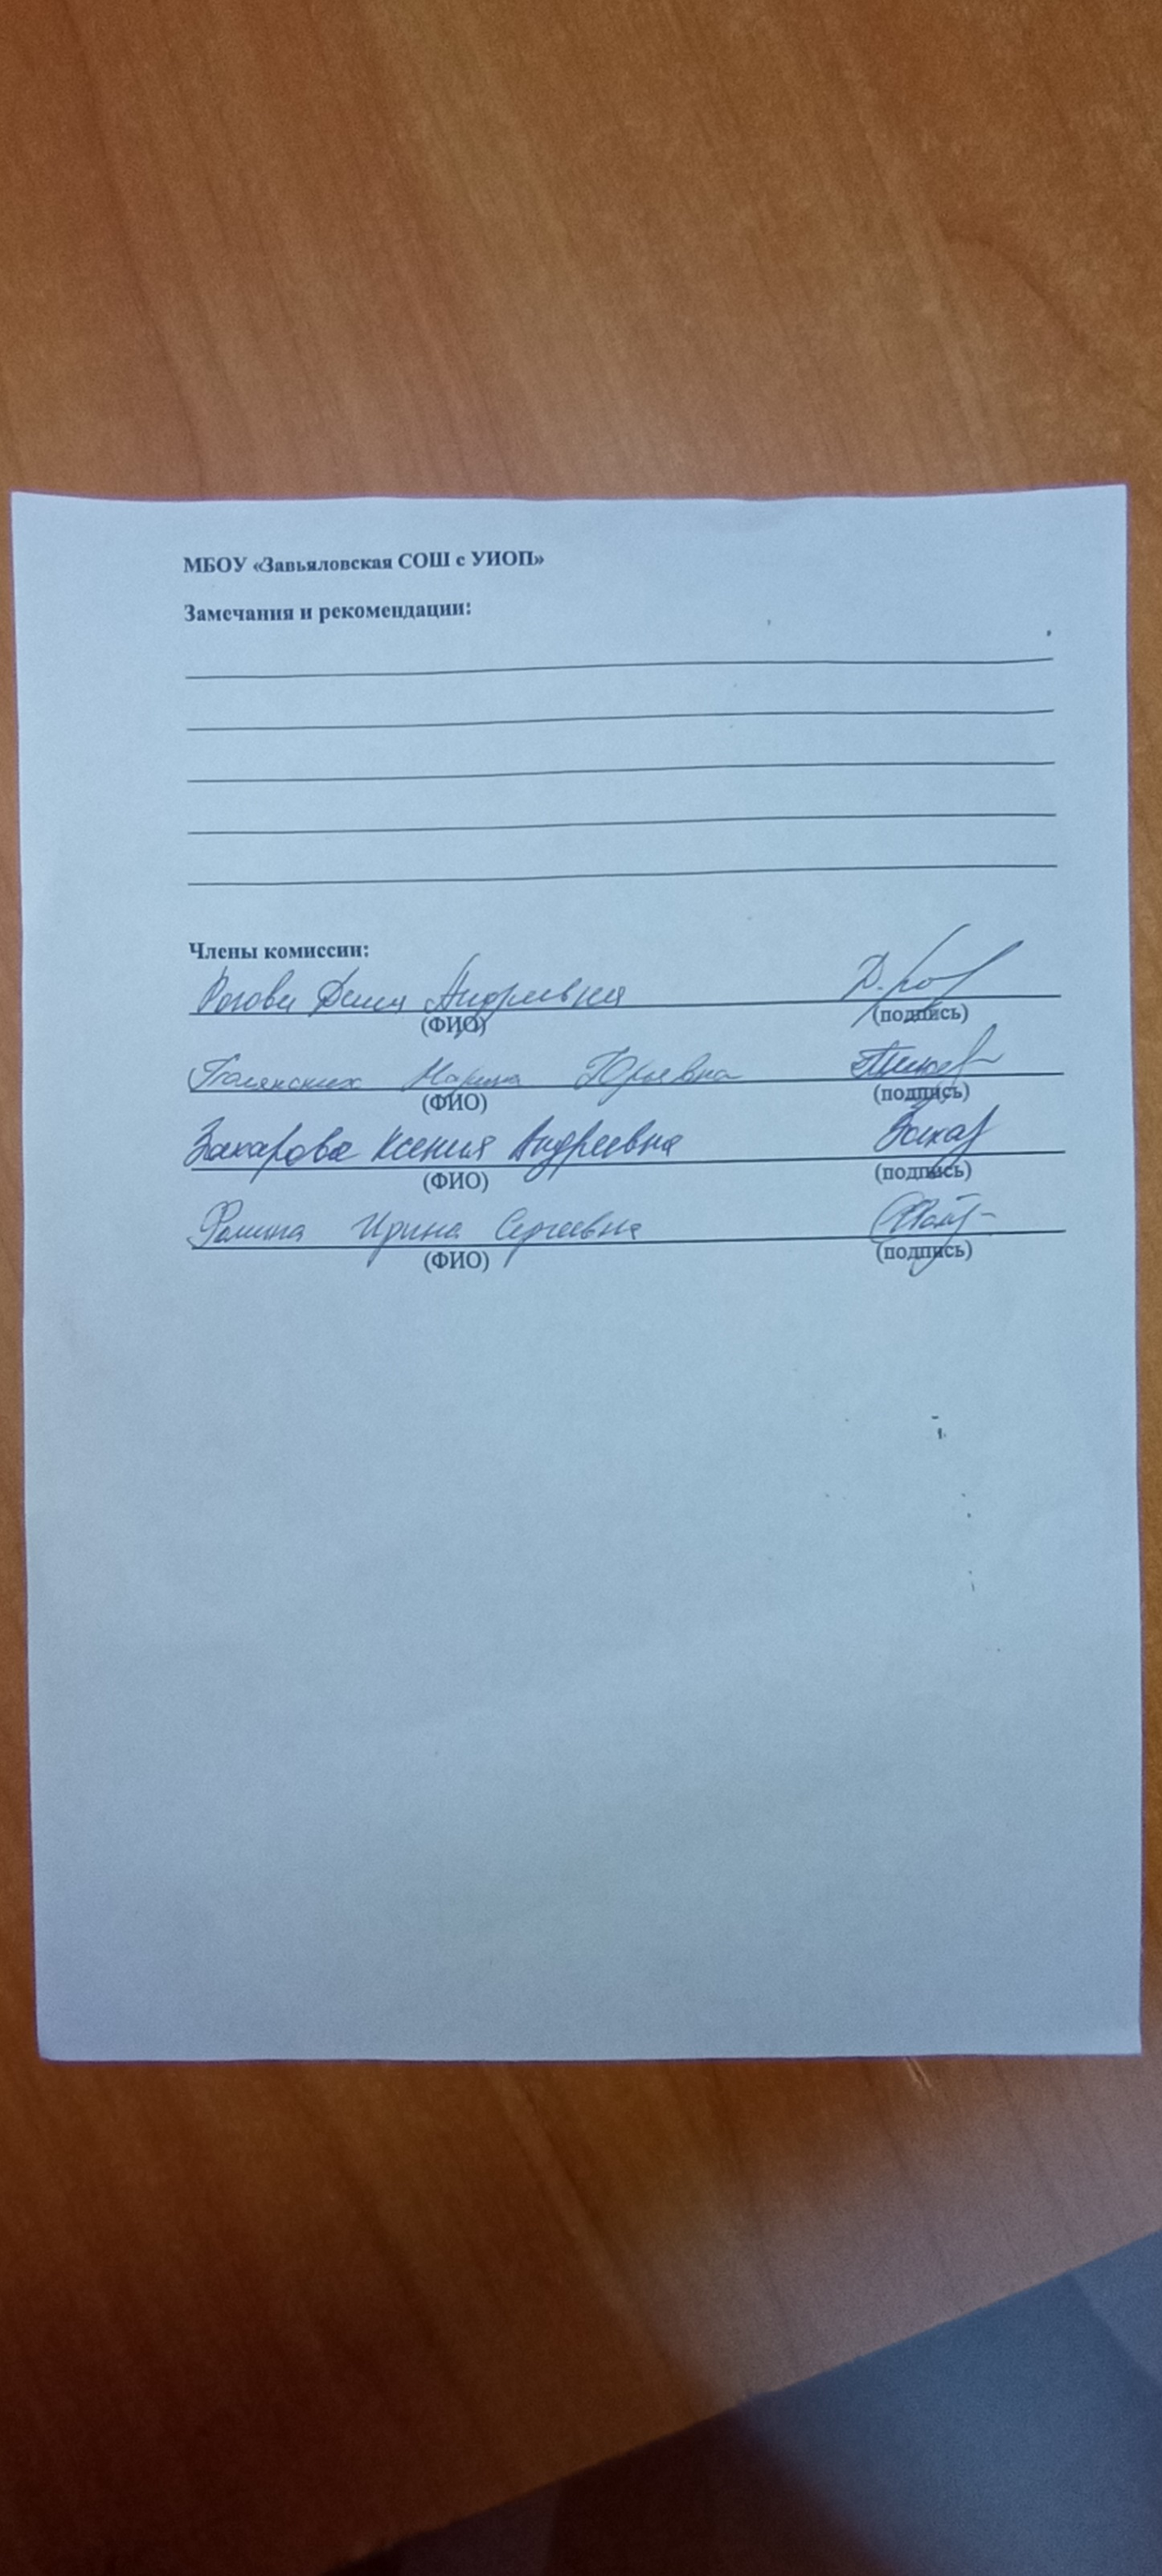 МБОУ «Завьяловская СОШ с УИОП»
Замечания и рекомендации:
Члены комиссии:
Андреевна
(ФИО) (подпись)
Марина Юрьевна
(ФИО) (подпись)
Захарова Ксения Андреевна Захар
(ФИО) (подпись)
Ирина Сергеевна
(ФИО) (подпись)